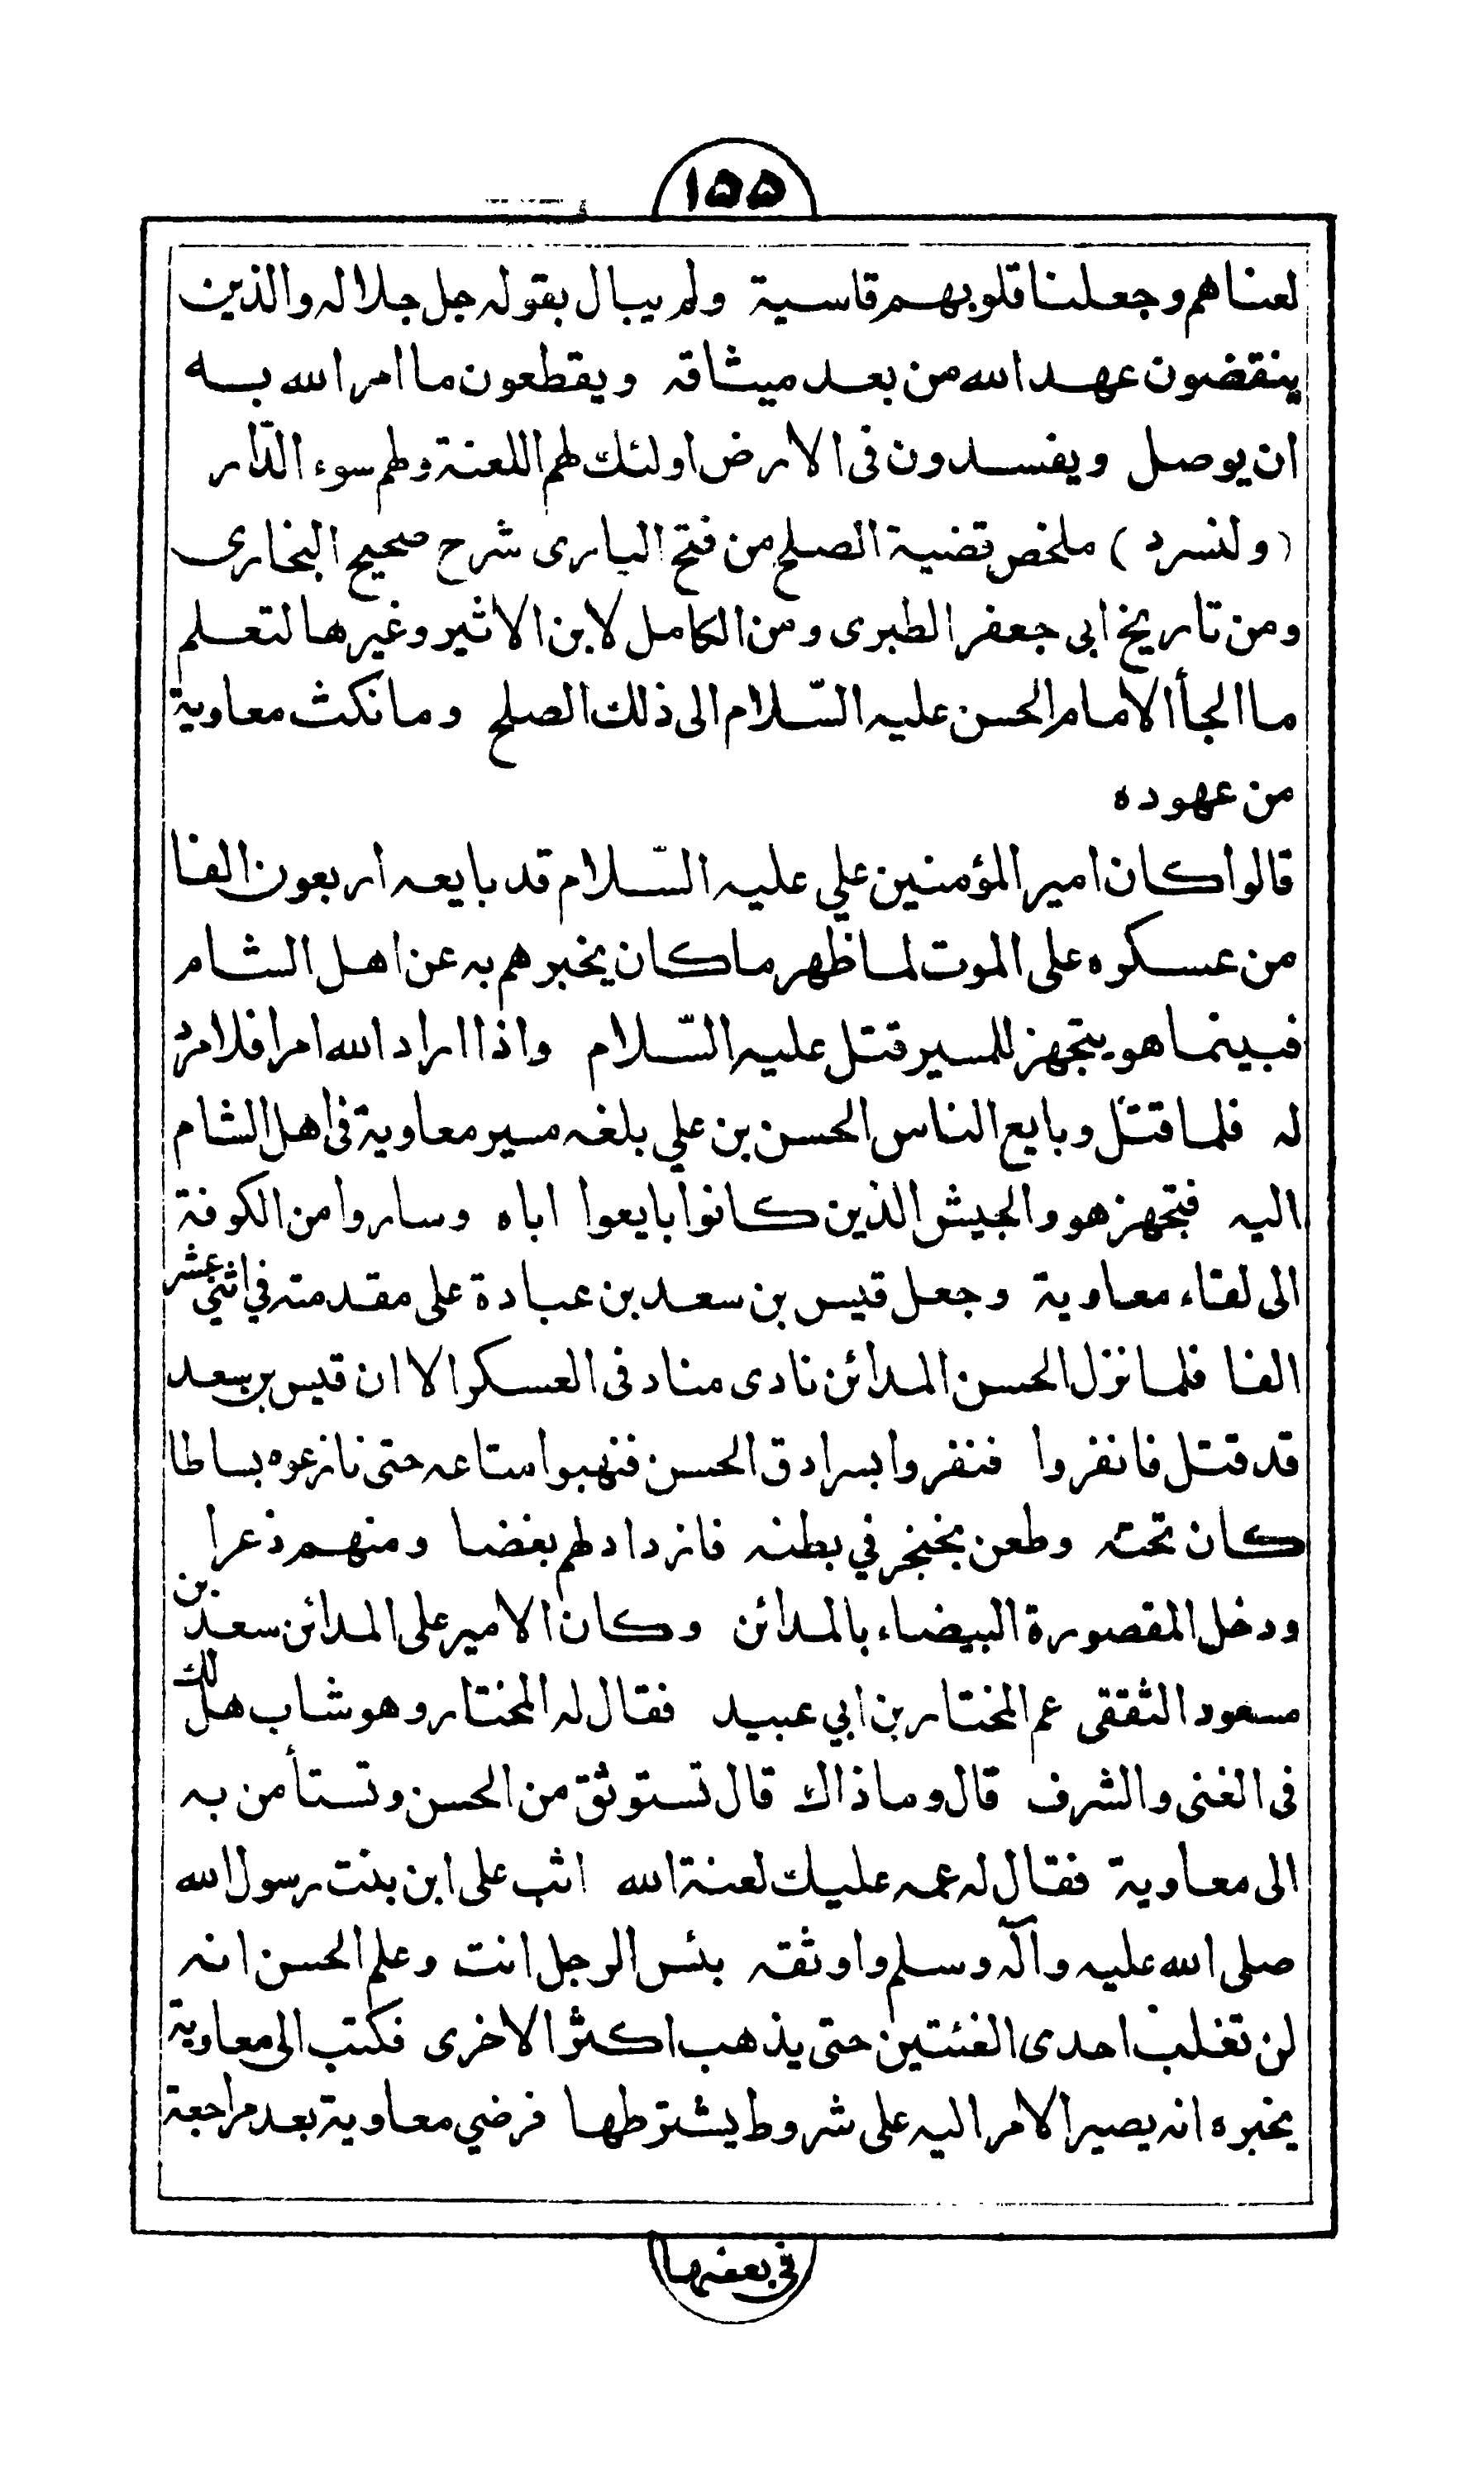 ١٥٥
لعناهم وجعلنا قلوبهم قاسية ولم يبال بقوله جل جلاله والذين
ينقضون عهد الله من بعد ميثاقه ويقطعون ما امر الله به
ان يوصل ويفسدون فى الارض اولئك لهم اللعنة ولهم سوء الدّار
(ولنسرد) ملخص قضية الصلح من فتح البارى شرح صحيح البخارى
ومن تاريخ ابى جعفر الطبرى ومن الكامل لابن الاثير وغيرها لتعلم
ما الجأ الامام الحسن عليه السّلام الى ذلك الصلح وما نكث معاوية
من عهوده
قالوا كان امير المؤمنين علي عليه السّلام قد بايعه اربعون الفا
من عسكره على الموت لما ظهر ما كان يخبرهم به عن اهل الشام
فبينما هو يتجهز للمسير قتل عليه السّلام واذا اراد الله امرا فلا مردّ
له فلما قتل وبايع الناس الحسن بن علي بلغه مسير معاوية فى اهل الشام
اليه فتجهز هو والجيش الذين كانوا بايعوا اباه وساروا من الكوفة
الى لقاء معاوية وجعل قيس بن سعد بن عبادة على مقدمته في اثني عشر
الفا فلما نزل الحسن المدائن نادى مناد فى العسكر الا ان قيس بن سعد
قد قتل فانفروا فنفروا بسرادق الحسن فنهبوا متاعه حتى نازعوه بساطا
كان تحته وطعن بخنجر في بطنه فازداد لهم بغضا ومنهم ذعرا
ودخل المقصورة البيضاء بالمدائن وكان الامير على المدائن سعد بن
مسعود الثقفى عم المختار بن ابي عبيد فقال له المختار وهو شاب هل لك
فى الغنى والشرف قال وما ذاك قال تستوثق من الحسن وتستأمن به
الى معاوية فقال له عمه عليك لعنة الله اثب على ابن بنت رسول الله
صلى الله عليه وآله وسلم واوثقه بئس الرجل انت وعلم الحسن انه
لن تغلب احدى الفئتين حتى يذهب اكثر الاخرى فكتب الى معاوية
يخبره انه يصير الامر اليه على شروط يشترطها فرضي معاوية بعد مراجعة
فى بعضها